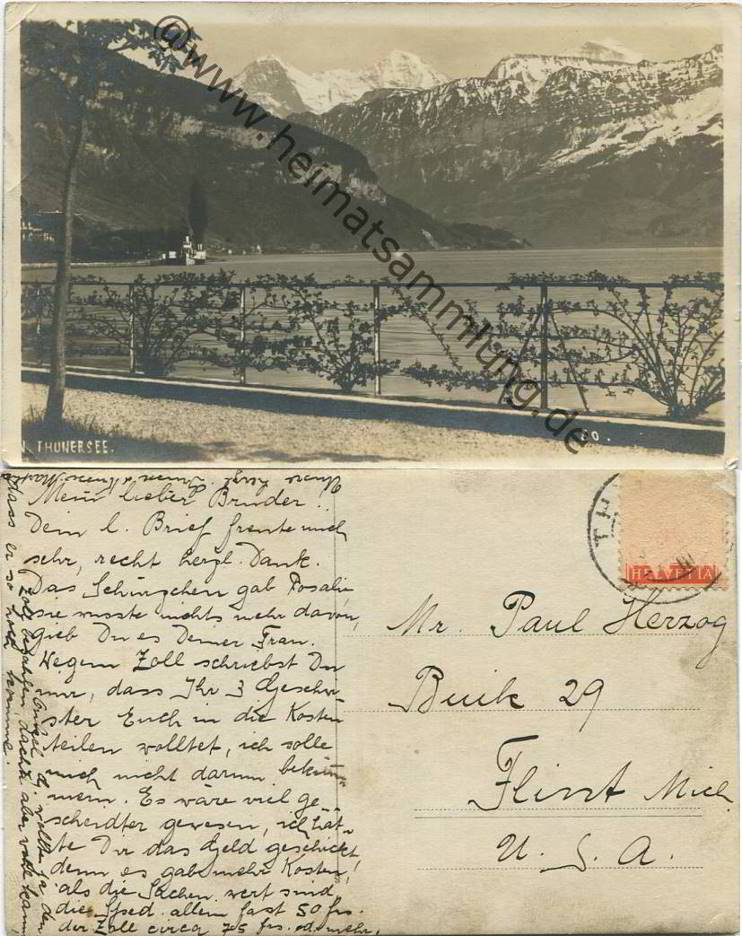 @www.heimatsammlung.de
THUNERSEE.
Mein lieber Bruder!
Dein l. Brief freute mich
sehr, recht herzl. Dank.
Das Schürzchen gab Rosalie
sie wusste nichts mehr davon,
gieb Du es Deiner Frau.
Wegem Zoll schriebst Du
mir, dass Ihr 3 Geschwi-
ster Euch in die Kosten
teilen wolltet, ich solle
mich nicht darum beküm-
mern. Es wäre viel ge-
scheidter gewesen, ich hät-
te Dir das Geld geschickt
denn es gab mehr Kosten,
als die Sachen wert sind
die Sped. allein fast 50 frs.
der Zoll circa 75 frs. od. mehr,
Zoll bezahlen, dachte aber nicht
dass er so hoch komme.
HELVETIA
Mr. Paul Herzog
Buik 29
Flint Mich.
U. S. A.